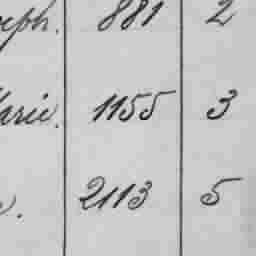 eph. 881 2
arie. 1155 3
. 2113 5